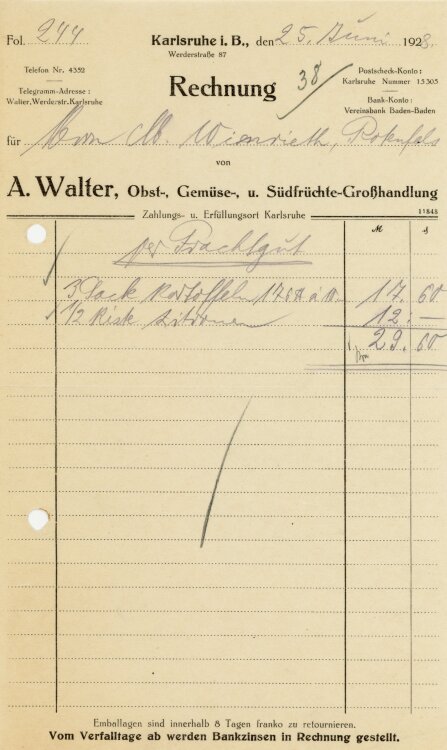 Fol. 244
Karlsruhe i. B., den 25. Juni 1928.
Werderstraße 87
Telefon Nr. 4352
Telegramm-Adresse :
Walter, Werderstr. Karlsruhe
Rechnung
38/
Postscheck-Konto :
Karlsruhe Nummer 15305
Bank-Konto :
Vereinsbank Baden-Baden
für Herrn M. Wienrieth,
von
A. Walter, Obst-, Gemüse-, u. Südfrüchte-Großhandlung
Zahlungs- u. Erfüllungsort Karlsruhe
11848
M ₰
per Frachtgut
3 Sack Kartoffeln à 10. 17. 60
1/2 Kiste Zitronen 12. —
29. 60
Emballagen sind innerhalb 8 Tagen franko zu retournieren.
Vom Verfalltage ab werden Bankzinsen in Rechnung gestellt.